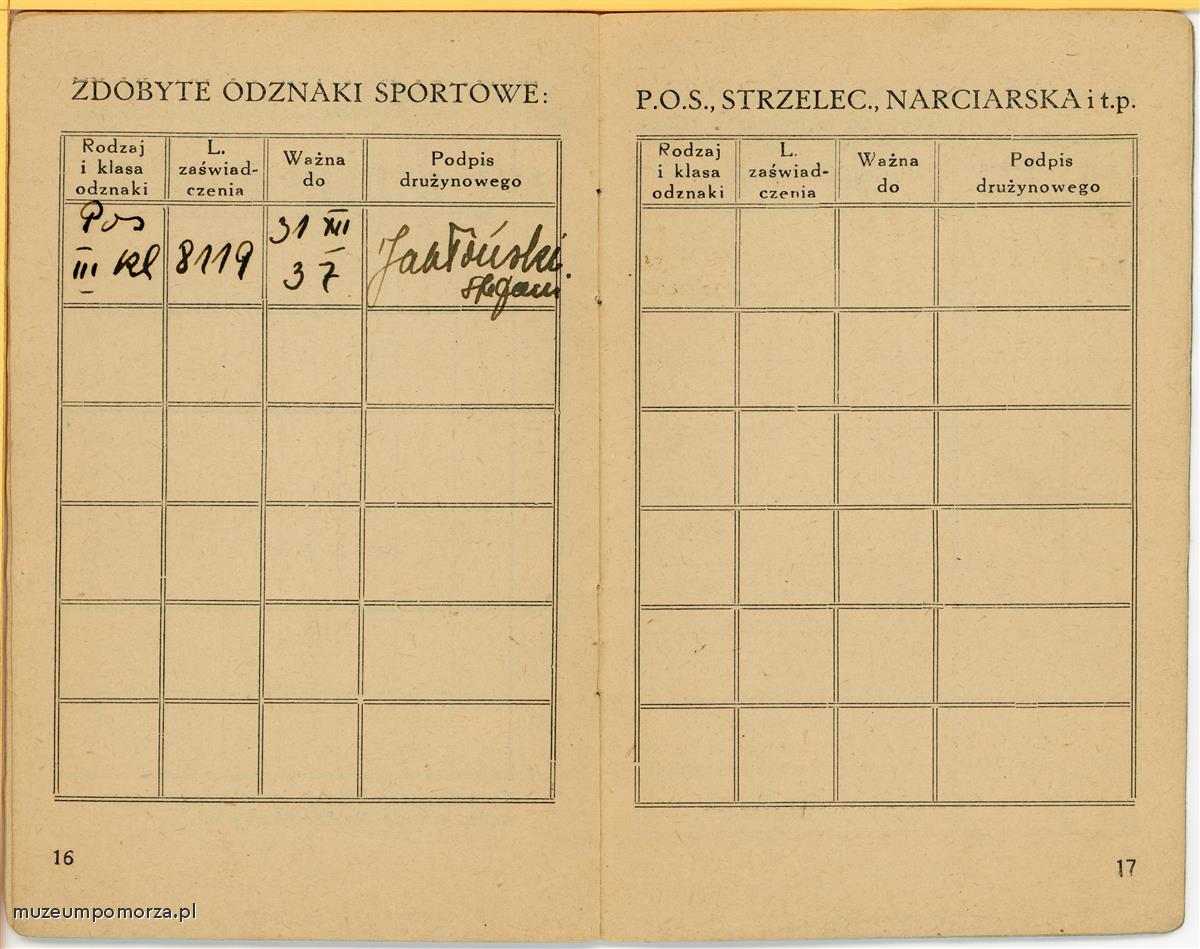 ZDOBYTE ODZNAKI SPORTOWE:
Rodzaj i klasa odznaki
L. zaświad-czenia
Ważna do
Podpis drużynowego
Pos III kl
8119
31 XII 37
Jabłoński Stefan
16
P.O.S., STRZELEC., NARCIARSKA i t.p.
Rodzaj i klasa odznaki
L. zaświad-czenia
Ważna do
Podpis drużynowego
17
muzeumpomorza.pl